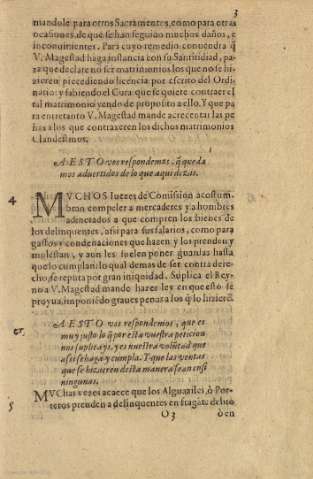 3
mandole para otros Sacramentos, como para otras
ocasiones, de què se han seguido muchos daños, e
inconuinientes. Para cuyo remedio conuẽdra q̃
V. Magestad haga instancia con su Santidad, pa-
ra que declare no ser matrimonios los que no se hi-
zieren precediendo licencia por escrito del Ordi-
nario: y sabiendo el Cura que se quiere contraer el
tal matrimonio yendo de proposito a ello. Y que pa
ra entretanto V. Magestad mande acrecentar las pe
nas a los que contraxeren los dichos matrimonios
Clandestinos.
A ESTO vos respondemos, q̃ queda
mos aduertidos de lo que aqui dezis.
4
MVCHOS Iuezes de Comission acostum-
bran compeler a mercaderes y a hombres
adinerados a que compren los bienes de
los delinquentes, assi para sus salarios, como para
gastos y condenaciones que hazen y los prenden y
molestan, y aun les suelen poner guardas hasta
que lo cumplan: lo qual demas de ser contra dere-
cho, se reputa por gran iniquidad. Suplica el Rey-
no a V. Magestad mande hazer ley en que esto se
prohiua, imponiẽdo graues penas a los q̃ lo hizierẽ.
A ESTO vos respondemos, que es
muy justo lo q̃ por esta vuestra peticion
nos suplicays, y es nuestra volũtad que
assi se haga y cumpla. Y que las ventas
que se hizieren desta manera sean en si
ningunas.
5
MVchas vezes acaece que los Alguaziles, ò Por-
teros prenden a delinquentes en fragãte delito
O 3
ò en